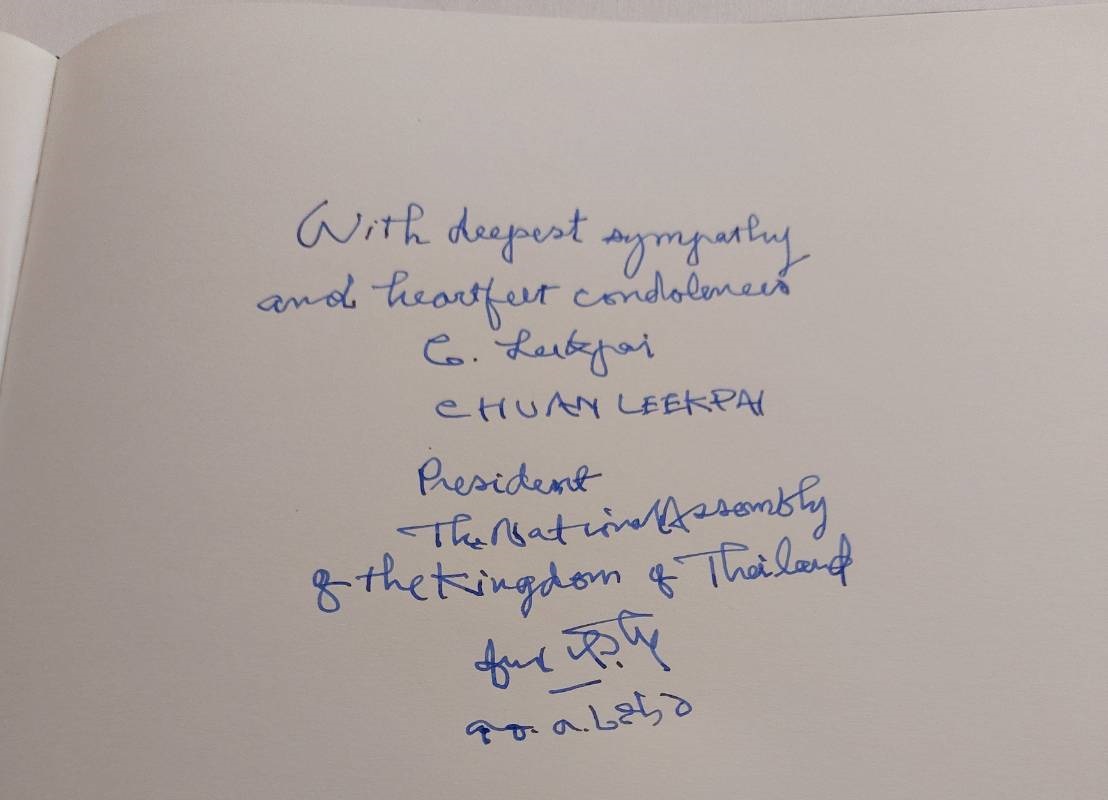 With deepest sympathy
and heartfelt condolences
C. Leekpai
CHUAN LEEKPAI
President
The National Assembly
of the Kingdom of Thailand